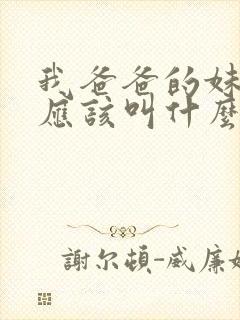 我爸爸的妹
應該叫什麼
謝尔頓-威廉